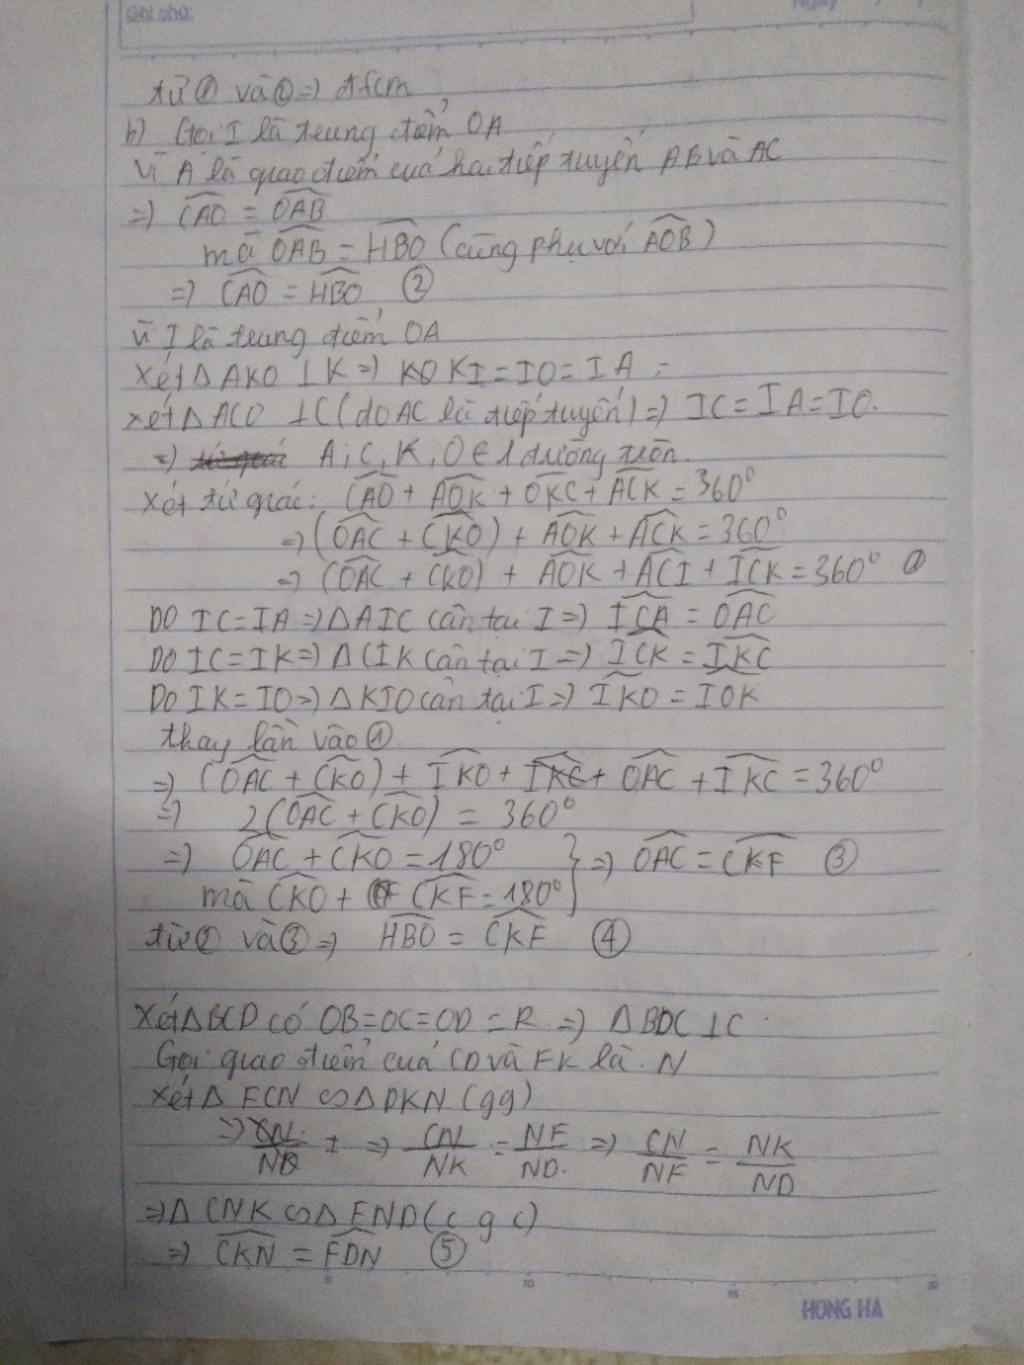 Ghi chú:
Ngày
từ ① và ② => đfcm
b) Gọi I là trung điểm OA
Vì A là giao điểm cuả hai tiếp tuyến AB và AC
=> CAO = OAB
mà OAB = HBO (cùng phụ với AOB)
=> CAO = HBO ②
vì I là trung điểm OA
Xét Δ AKO ⊥ K => KO KI = IO = IA
xét Δ ACO ⊥ C (do AC là tiếp tuyến) => IC = IA = IO.
=> tứ giác A, C, K, O ∈ 1 đường tròn.
Xét tứ giác: CAO + AOK + OKC + ACK = 360°
=> (OAC + CKO) + AOK + ACK = 360°
=> (OAC + CKO) + AOK + ACI + ICK = 360° ①
Do IC = IA => Δ AIC cân tại I => ICA = OAC
Do IC = IK => Δ CIK cân tại I => ICK = IKC
Do IK = IO => Δ KIO cân tại I => IKO = IOK
thay lần vào ①
=> (OAC + CKO) + IKO + IKC + OAC + IKC = 360°
=> 2(OAC + CKO) = 360°
=> OAC + CKO = 180° } => OAC = CKF ③
mà CKO + CKF = 180°
từ ② và ③ => HBO = CKF ④
Xét Δ BCD có OB = OC = OD = R => Δ BDC ⊥ C
Gọi giao điểm cuả CD và FK là N
xét Δ FCN ∽ Δ DKN (gg)
=> CN/NK = NF/ND => CN/NF = NK/ND
=> Δ CNK ∽ Δ FND (c g c)
=> CKN = FDN ⑤
5 10 15 20
HONG HA